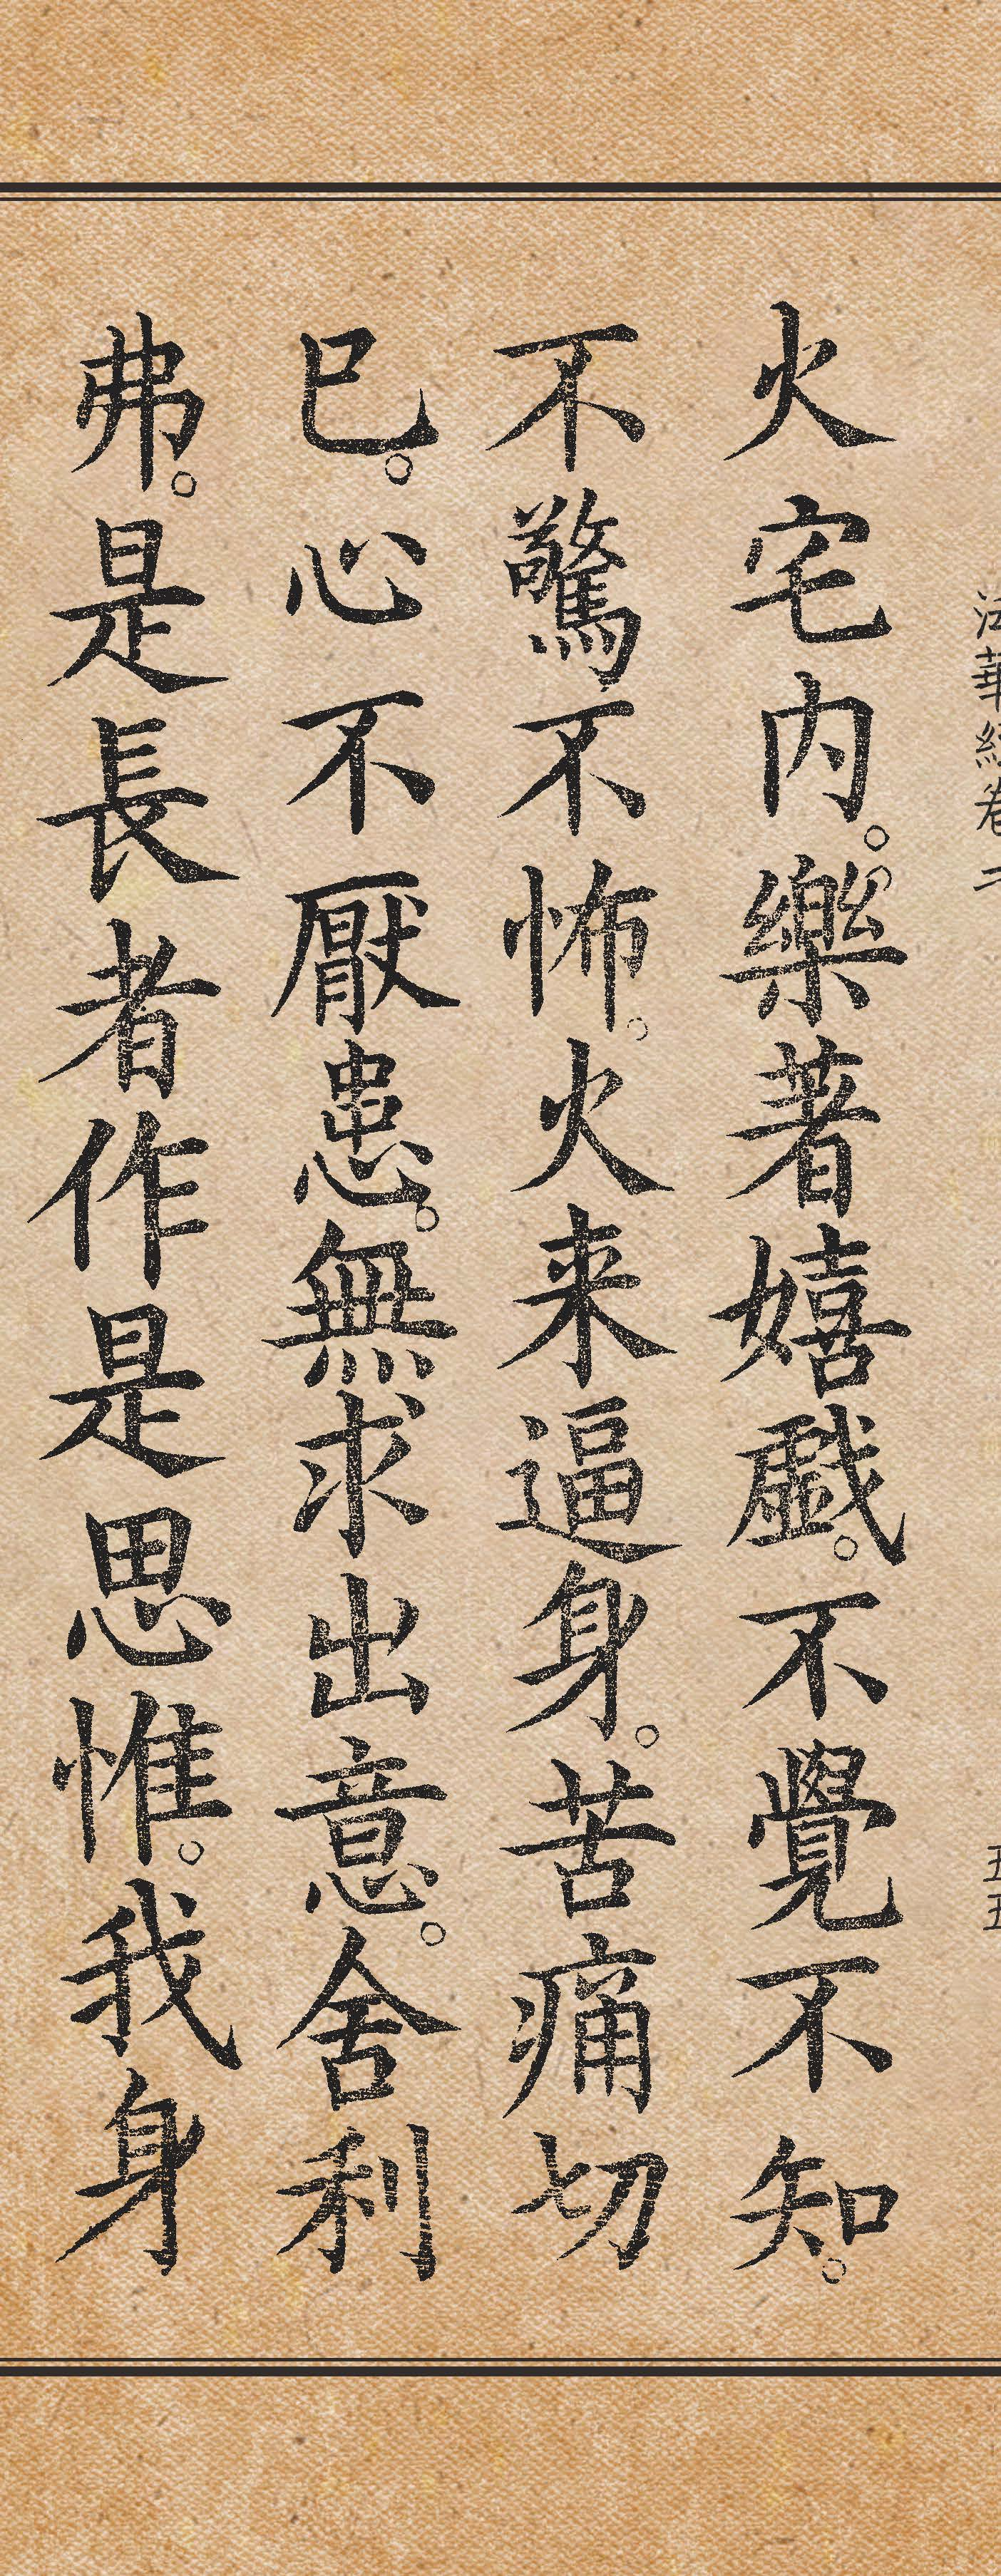 法華經卷二
五五
火宅内。樂著嬉戲。不覺不知。
不驚不怖。火来逼身。苦痛切
已。心不厭患。無求出意。舍利
弗。是長者作是思惟。我身